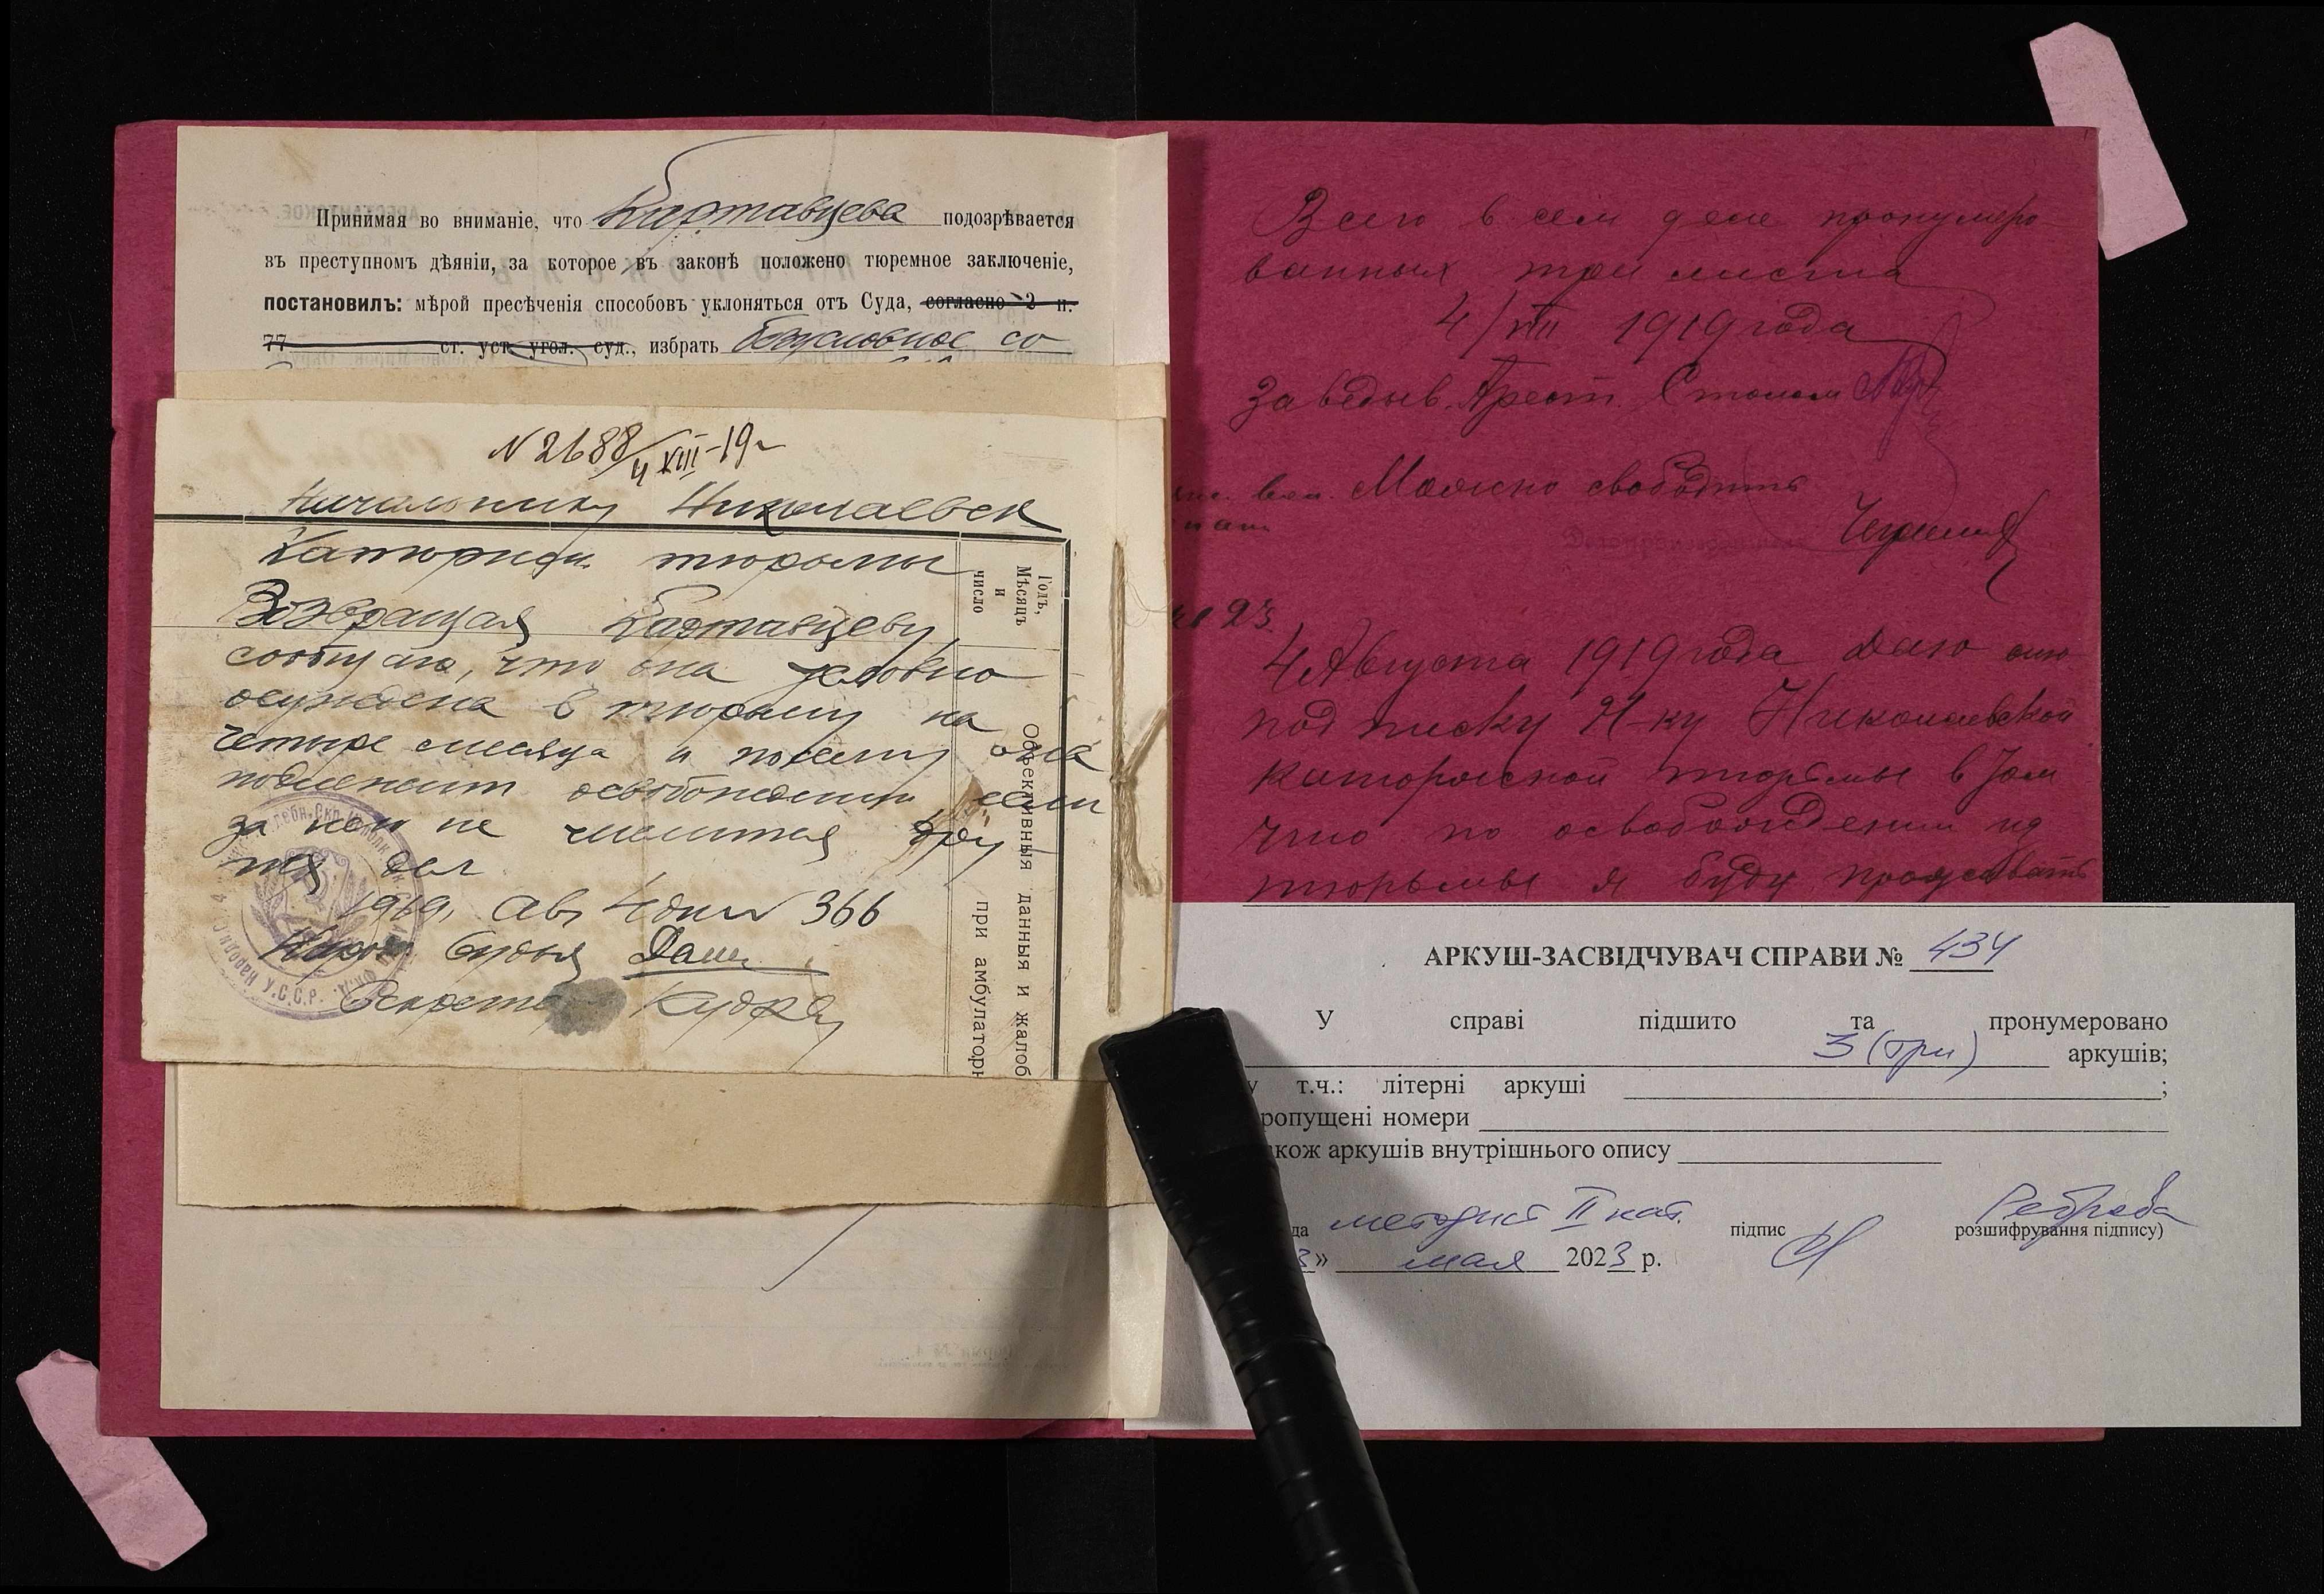 Принимая во вниманіе, что Картавцева подозрѣвается
въ преступномъ дѣяніи, за которое въ законѣ положено тюремное заключеніе,
постановилъ: мѣрой пресѣченія способовъ уклоняться отъ Суда, согласно 2 п.
77 ст. уст. угол. суд., избрать безусловное со
N 2688/4 VIII-19
Начальнику Николаевск
Каторжн. тюрьмы
Возвращая Картавцеву
сообщаю, что она условно
осуждена в тюрьму на
четыре месяца и потому она
подлежит освобождению если
за ней не числится дру
гих дел
1919, Авг 4 дня 366
Народн Судья
Секрета
Годъ,
Мѣсяцъ
и
число
Объективныя данныя и жалоб
при амбулаторн
У.С.С.Р.
Всего в сем деле пронумеро
ванных три листа
4/VIII 1919 года
Заведыв. Арест. Столом
Можно свободить
Делопроизводитель
23
4 Августа 1919 года Даю сию
подписку Н-ку Николаевской
каторжной тюрьмы в том
что по освобождении из
тюрьмы я буду проживать
АРКУШ-ЗАСВІДЧУВАЧ СПРАВИ № 434
У справі підшито та пронумеровано
3 (три) аркушів;
у т.ч.: літерні аркуші ;
ропущені номери
кож аркушів внутрішнього опису
да методист II кат. підпис Реброва
розшифрування підпису)
3» мая 2023 р.